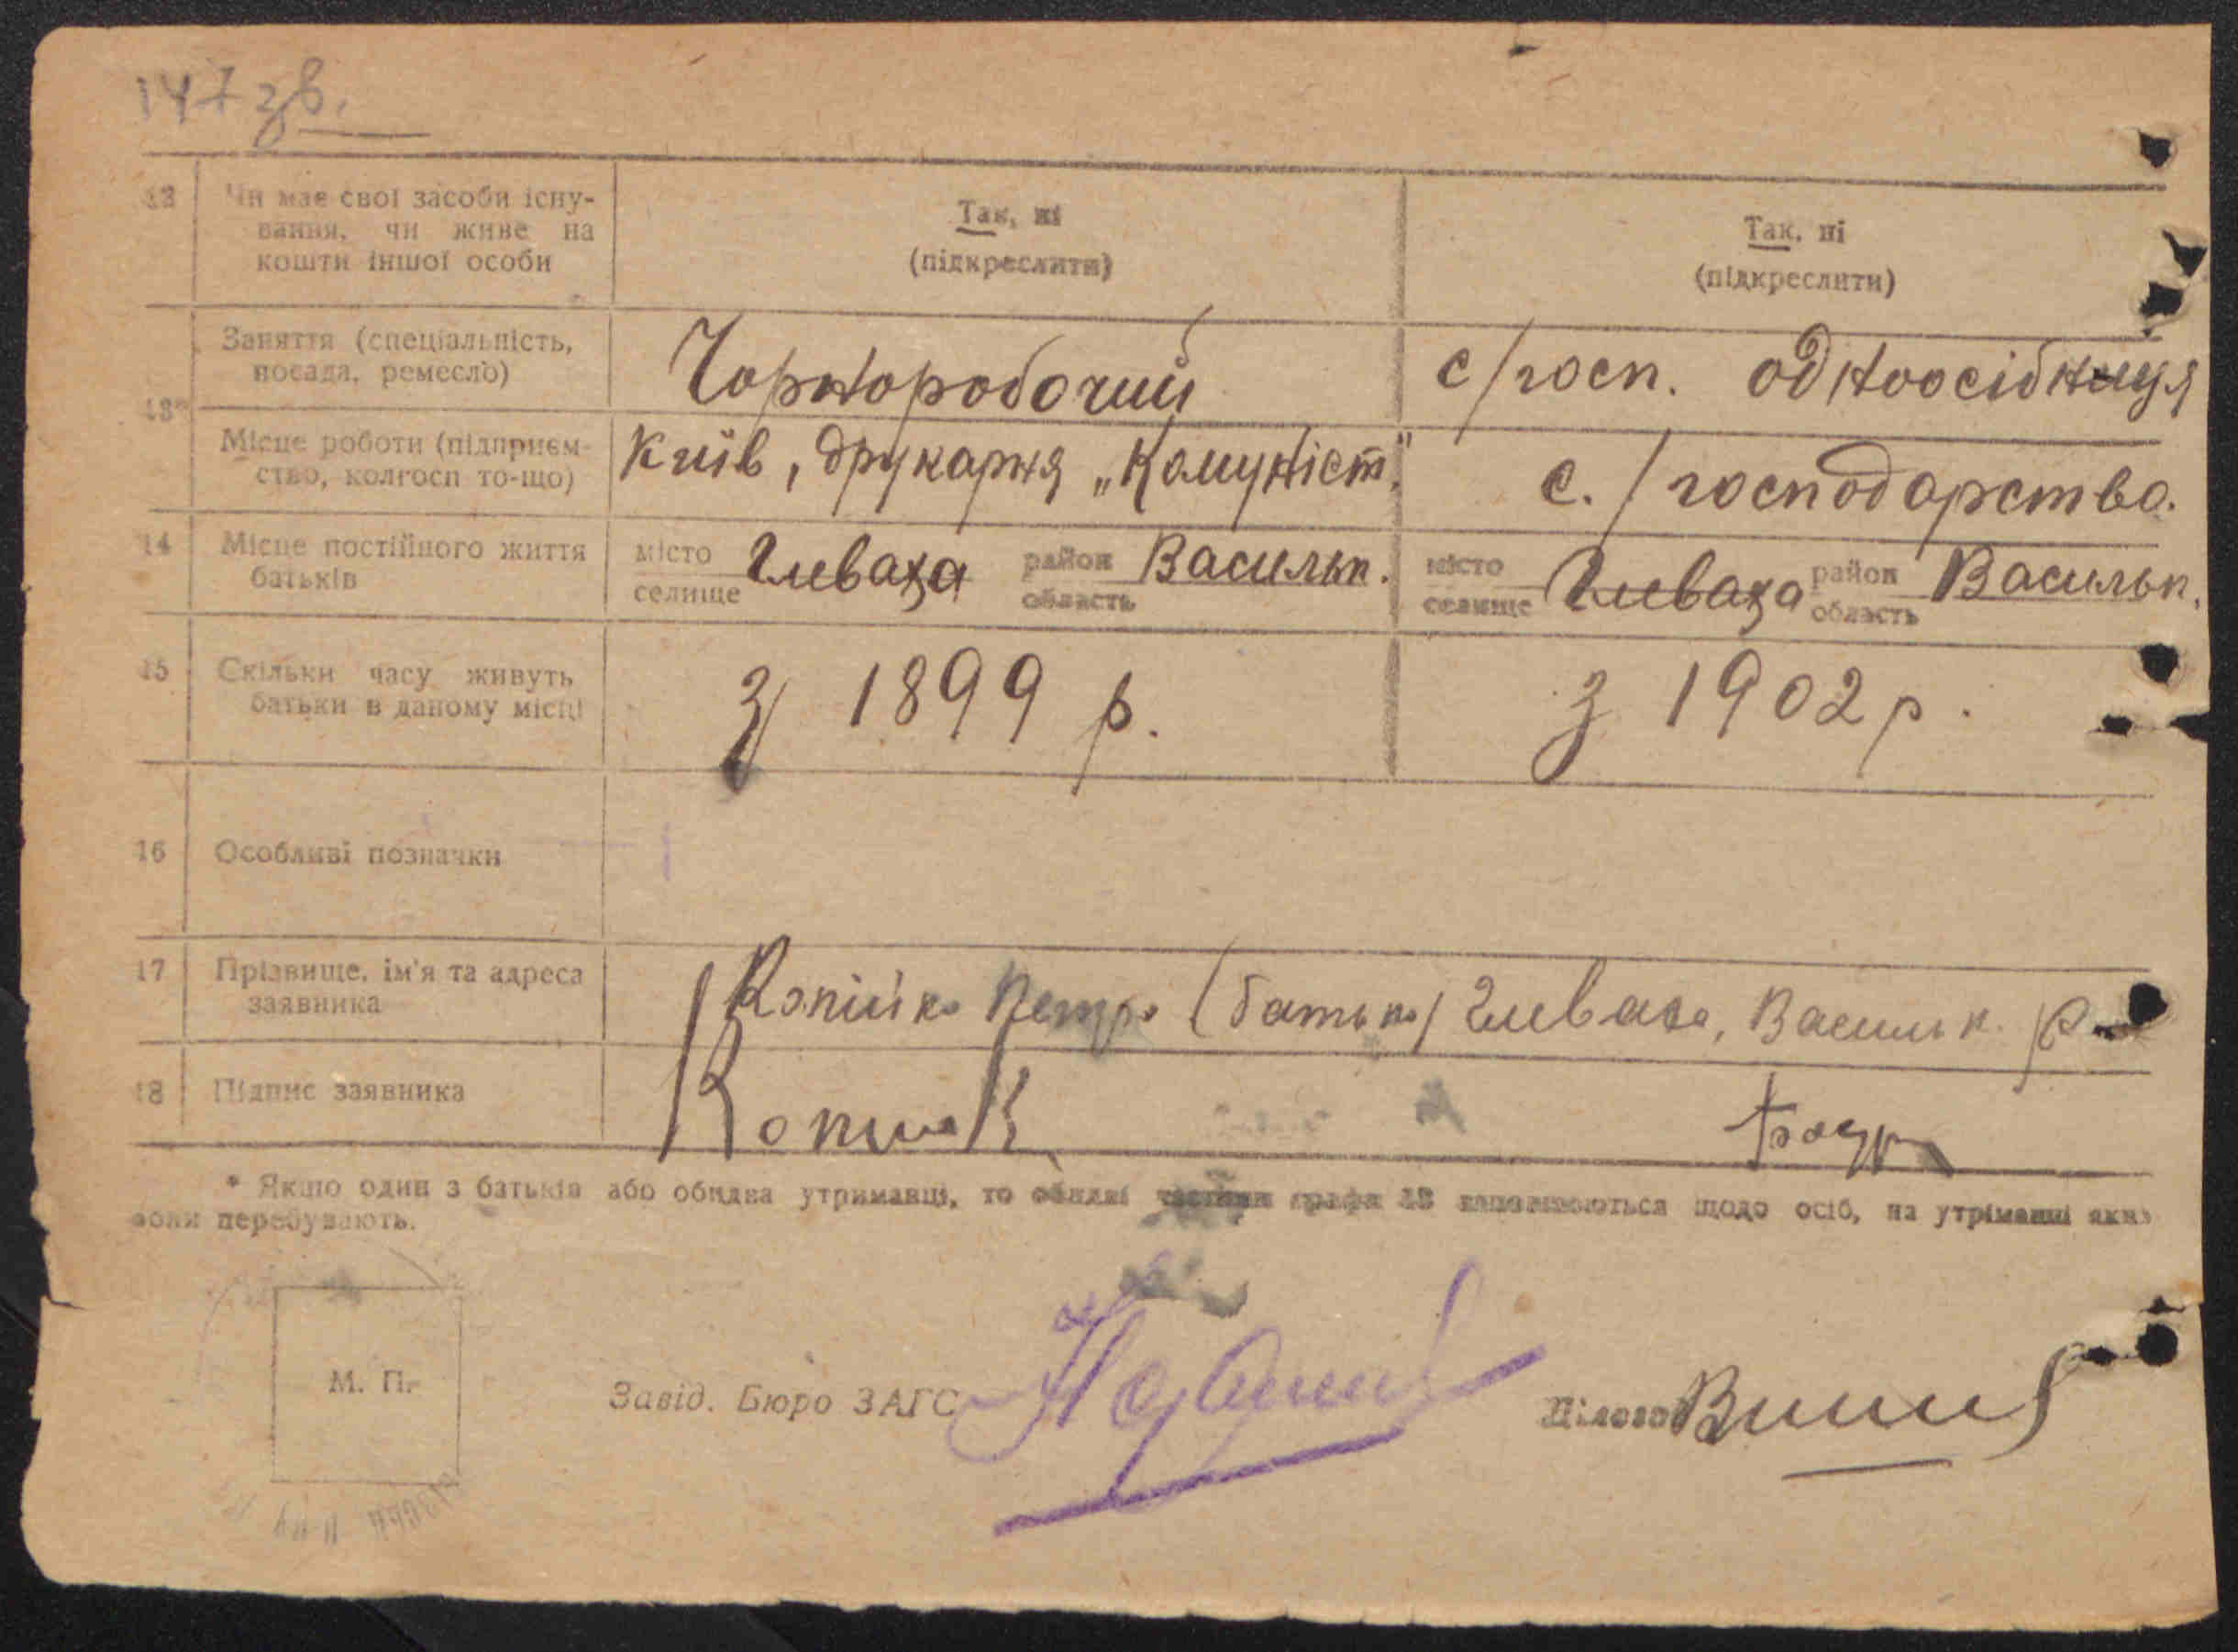 147 зв.
12 Чи має свої засоби існу-
вання, чи живе на
кошти іншої особи
Так, ні
(підкреслити)
Так, ні
(підкреслити)
13*
Заняття (спеціальність,
посада, ремесло)
Чорноробочий
с/госп. одноосібниця
Місце роботи (підприєм-
ство, колгосп то-що)
Київ, друкарня „Комуніст"
с./господарство.
14 Місце постійного життя
батьків
місто
селище
Глеваха
район
область
Васильк.
місто
селище
Глеваха
район
область
Васильк.
15 Скільки часу живуть
батьки в даному місці
З 1899 р.
З 1902 р.
16 Особливі позначки
17 Прізвище, ім'я та адреса
заявника
Копійка Петро (батько) Глеваха, Васильк. р.
18 Підпис заявника
* Якщо один з батьків або обидва утриманці, то обидві частини графи 13 заповнюються щодо осіб, на утриманні яких
вони перебувають.
М. П.
Завід. Бюро ЗАГС
Діловод